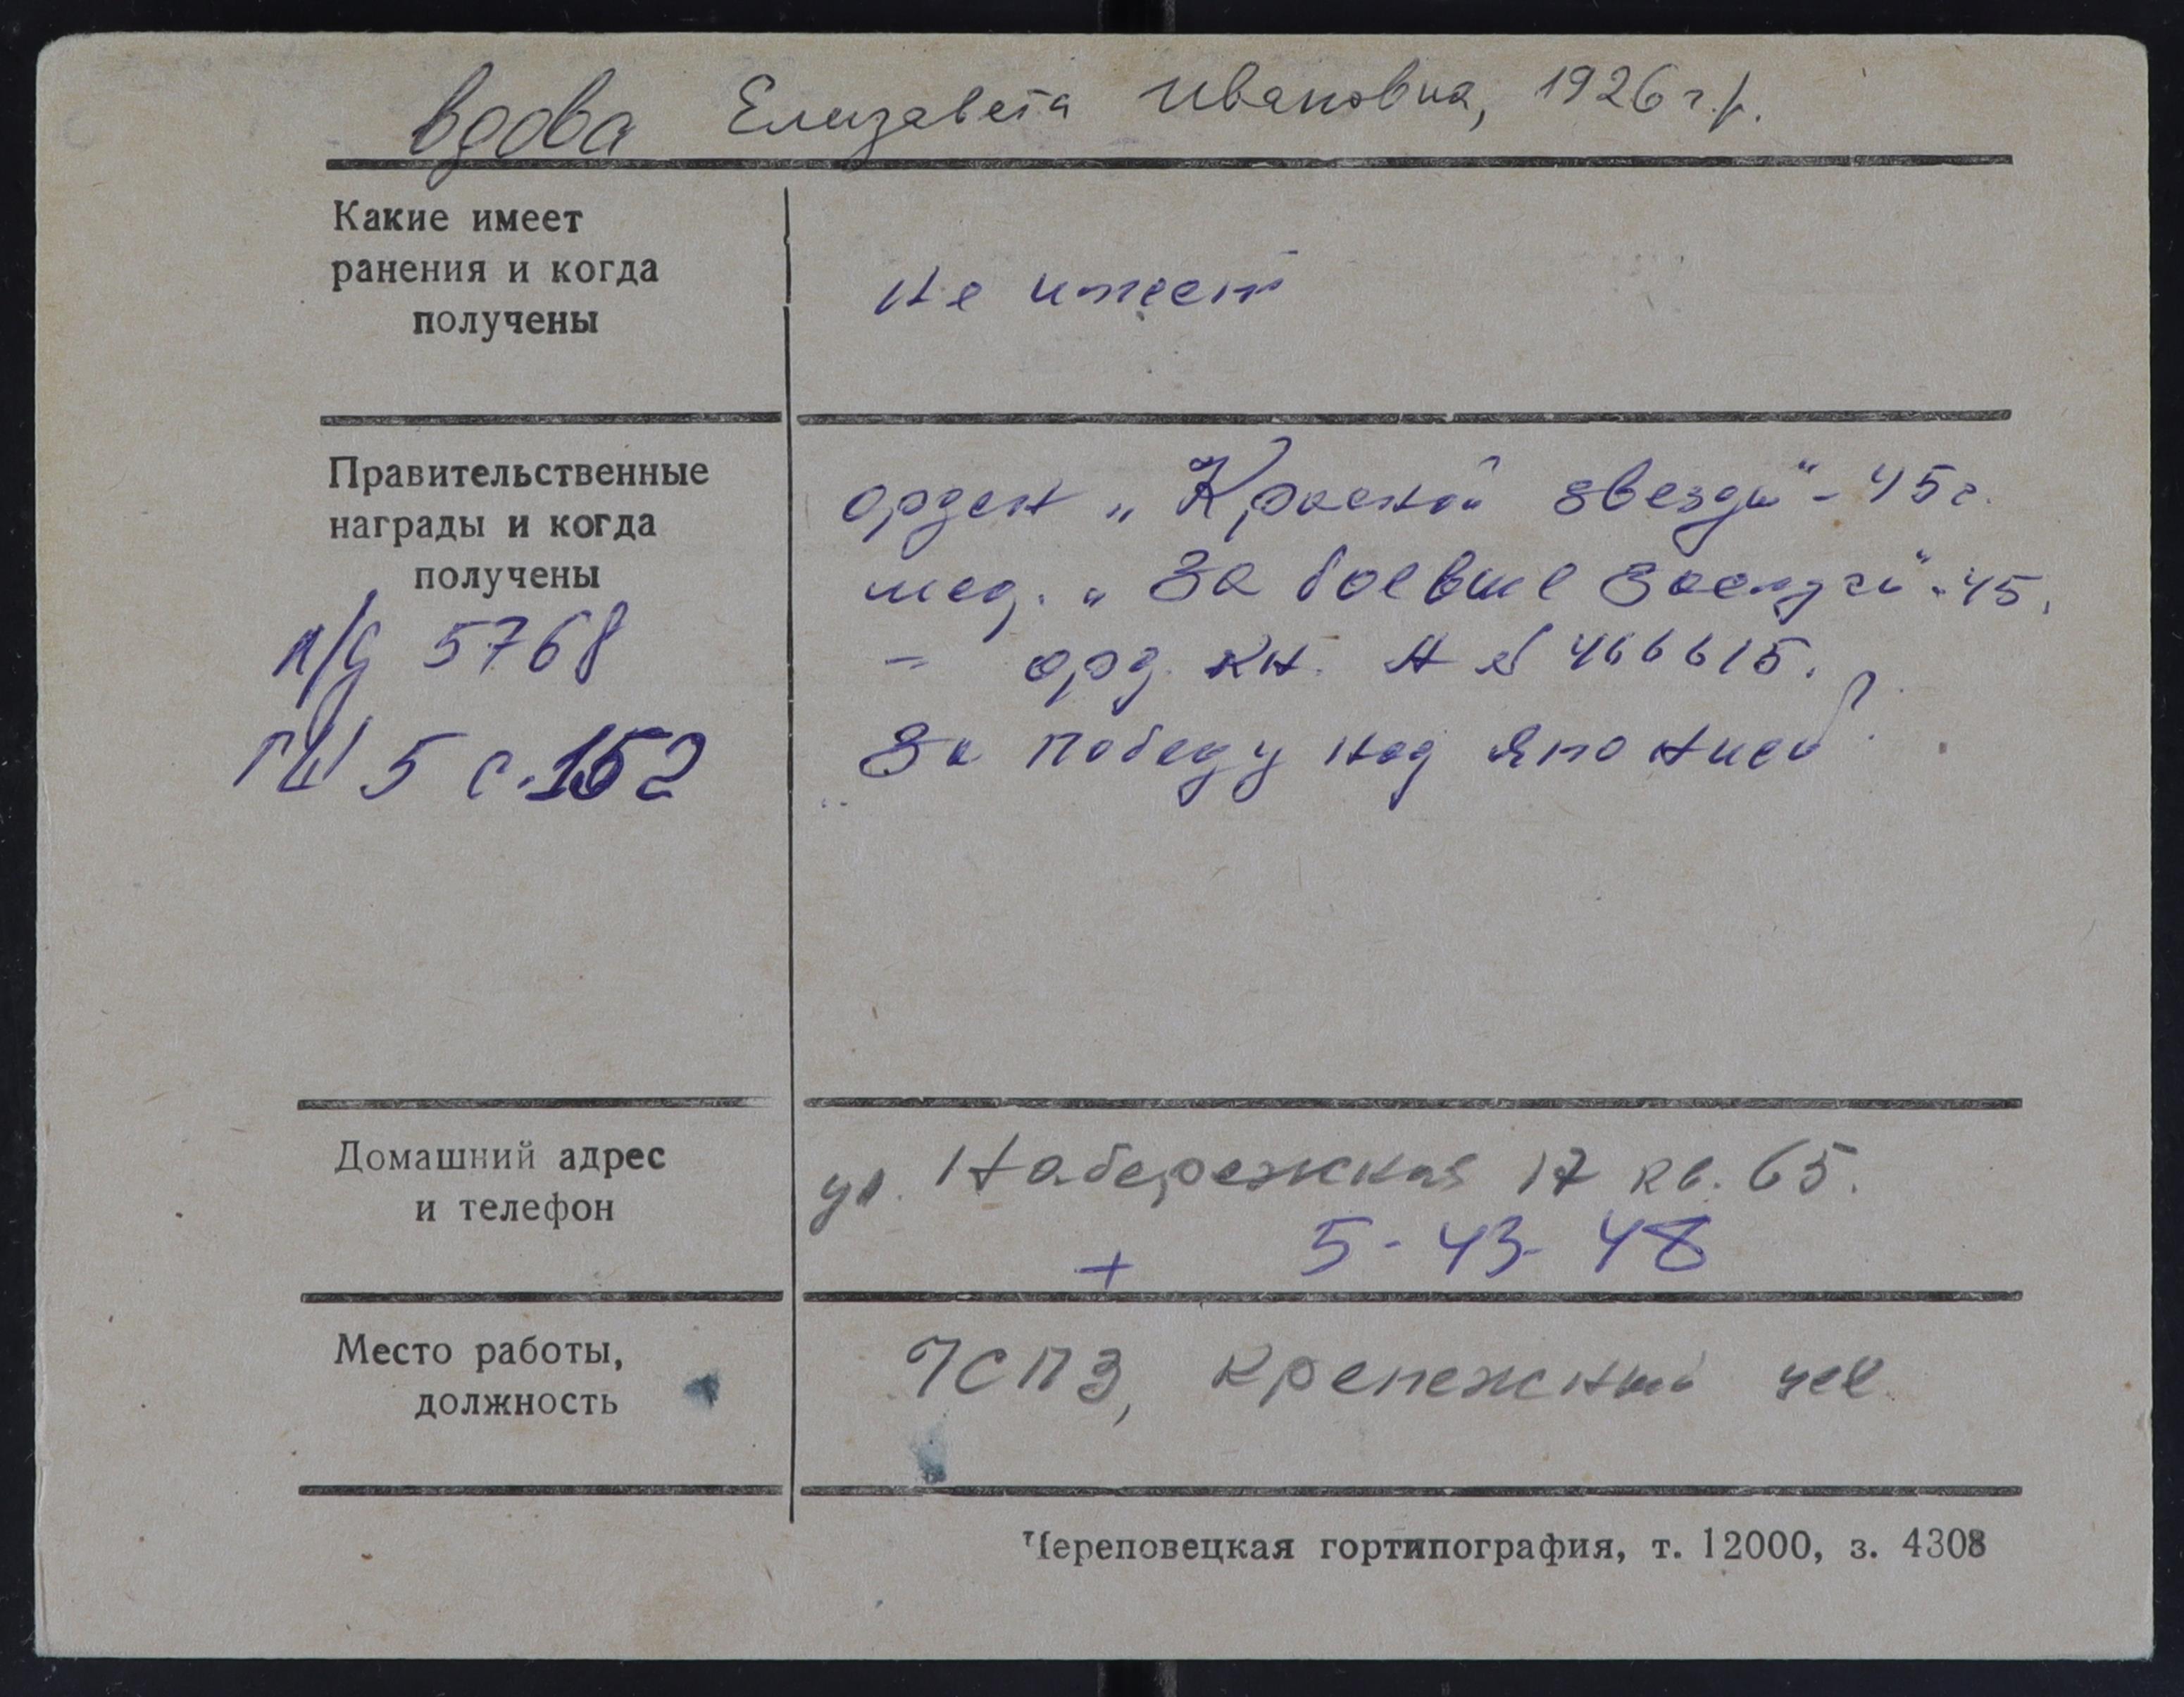 вдова Елизавета Ивановна, 1926 г.р.
Какие имеет
ранения и когда
получены
не имеет
Правительственные
награды и когда
получены
п/д 5768
ГШ 5 с.152
орден „Красной звезды" - 45 г.
мед. „За боевые заслуги" - 45.
- орд. кн. А № 466615.
За победу над Японией"
Домашний адрес
и телефон
ул. Набережная 17 кв. 65.
+ 5-43-48
Место работы,
должность
ЧСПЗ, крепежный цех
Череповецкая гортипография, т. 12000, з. 4308